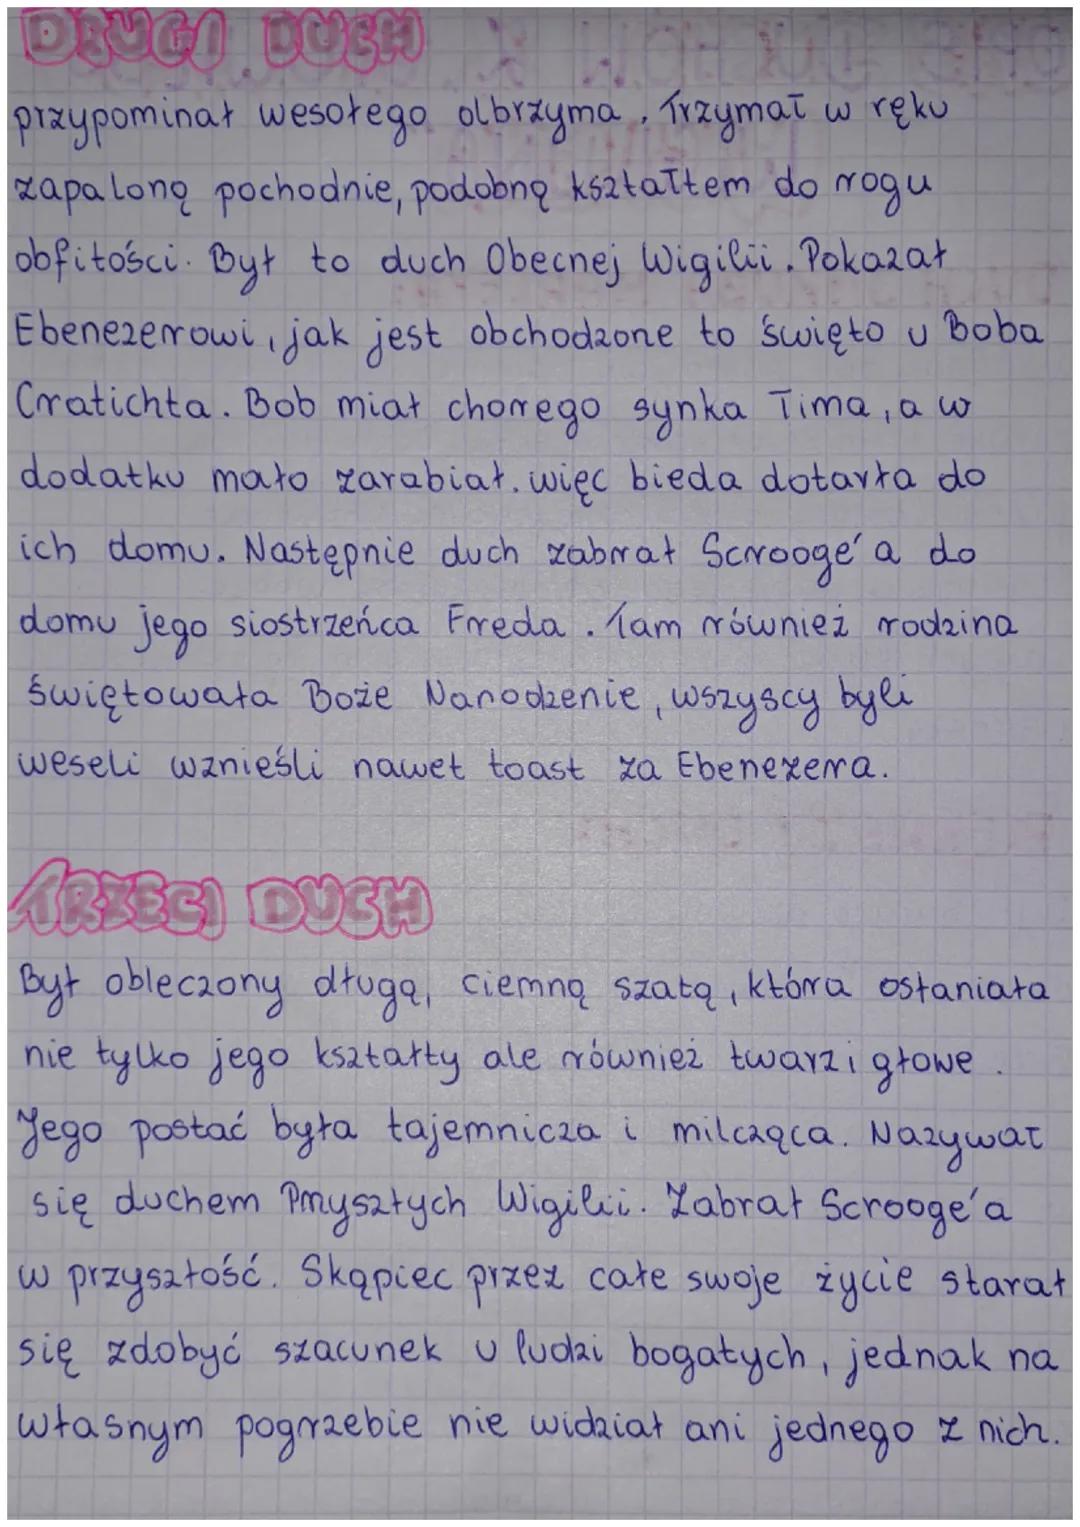 DRUGI DUCH
przypominał wesołego olbrzyma. Trzymał w ręku
zapaloną pochodnie, podobną kształtem do rogu
obfitości. Był to duch Obecnej Wigilii. Pokazał
Ebenezerowi, jak jest obchodzone to święto u Boba
Cratichta. Bob miał chorego synka Tima, a w
dodatku mało zarabiał. więc bieda dotarła do
ich domu. Następnie duch zabrał Scrooge'a do
domu jego siostrzeńca Freda. Tam również rodzina
świętowała Boże Narodzenie, wszyscy byli
weseli wznieśli nawet toast za Ebenezera.
TRZECI DUCH
Był obleczony długą, ciemną szatą, która osłaniała
nie tylko jego kształty ale również twarz i głowe.
Jego postać była tajemnicza i milcząca. Nazywał
się duchem Przyszłych Wigilii. Zabrał Scrooge'a
w przyszłość. Skąpiec przez całe swoje życie starał
się zdobyć szacunek u ludzi bogatych, jednak na
własnym pogrzebie nie widział ani jednego z nich.